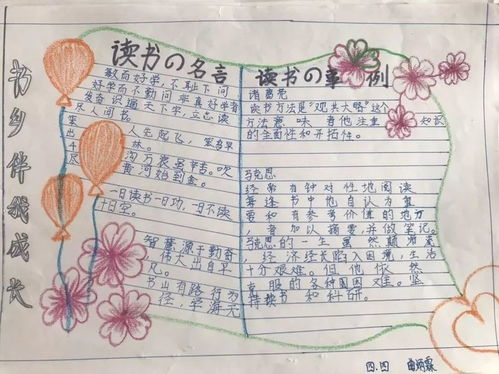 书乡伴我成长
读书の名言
敏而好学,不耻下问
好学而不勤问非真好学者
发奋识遍天下字,立志读
尽人间书
人先起飞,笨鸟早
林。
淘万漉虽辛苦。吹
尽
黄河始到金。
一日读书一日功,一日不读
十日空。
智慧源于勤奋
伟大出自平
凡。
书山有路
径,学海无
读书の事例
诸葛亮
读书方法是“观其大略”这个
方法意味着他注重
的全面性和开拓性。
马克思
经常有针对性地阅读
每逢书中他自认为重
要和有参考价值的地方
会加以摘要并做笔记。
马克思的一生虽然颠沛
经济经实陷入困境,生活
十分艰难。但他依然
克服的各种困难。坚
持读书和科研。
四.四